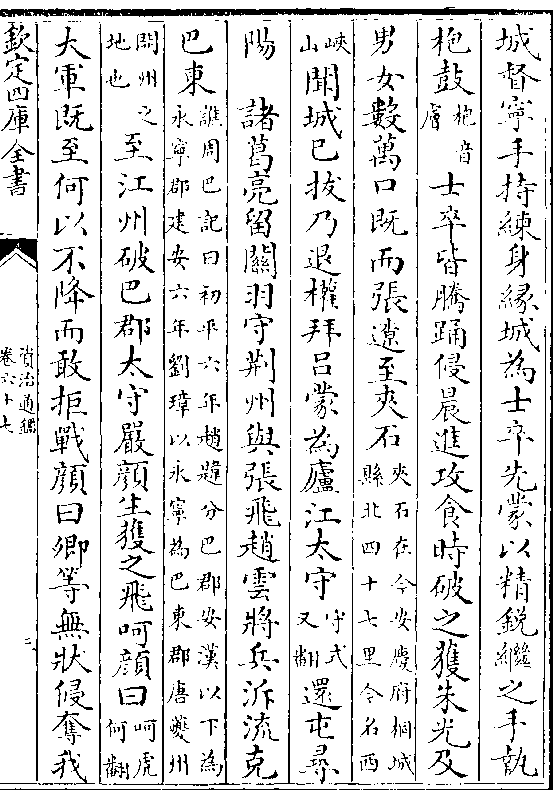 城督寧手持練身縁城為士卒先蒙以精銳繼之手執
枹鼓枹音膚士卒皆騰踊侵晨進攻食時破之獲朱光及
男女數萬口既而張遼至夾石夾石在今安慶府桐城縣北四十七里今名西
峽山聞城已拔乃退權拜呂蒙為廬江太守守式又翻還屯尋
陽 諸葛亮留關羽守荆州與張飛趙雲將兵泝流克
巴東譙周巴記曰初平六年趙韙分巴郡安漢以下為永寧郡建安六年劉璋以永寧為巴東郡唐夔州
開州之地也至江州破巴郡太守嚴顔生獲之飛呵顔曰呵虎何翻
大軍既至何以不降而敢拒戰顔曰卿等無狀侵奪我
欽定四庫全書
資治通鑑
卷六十七